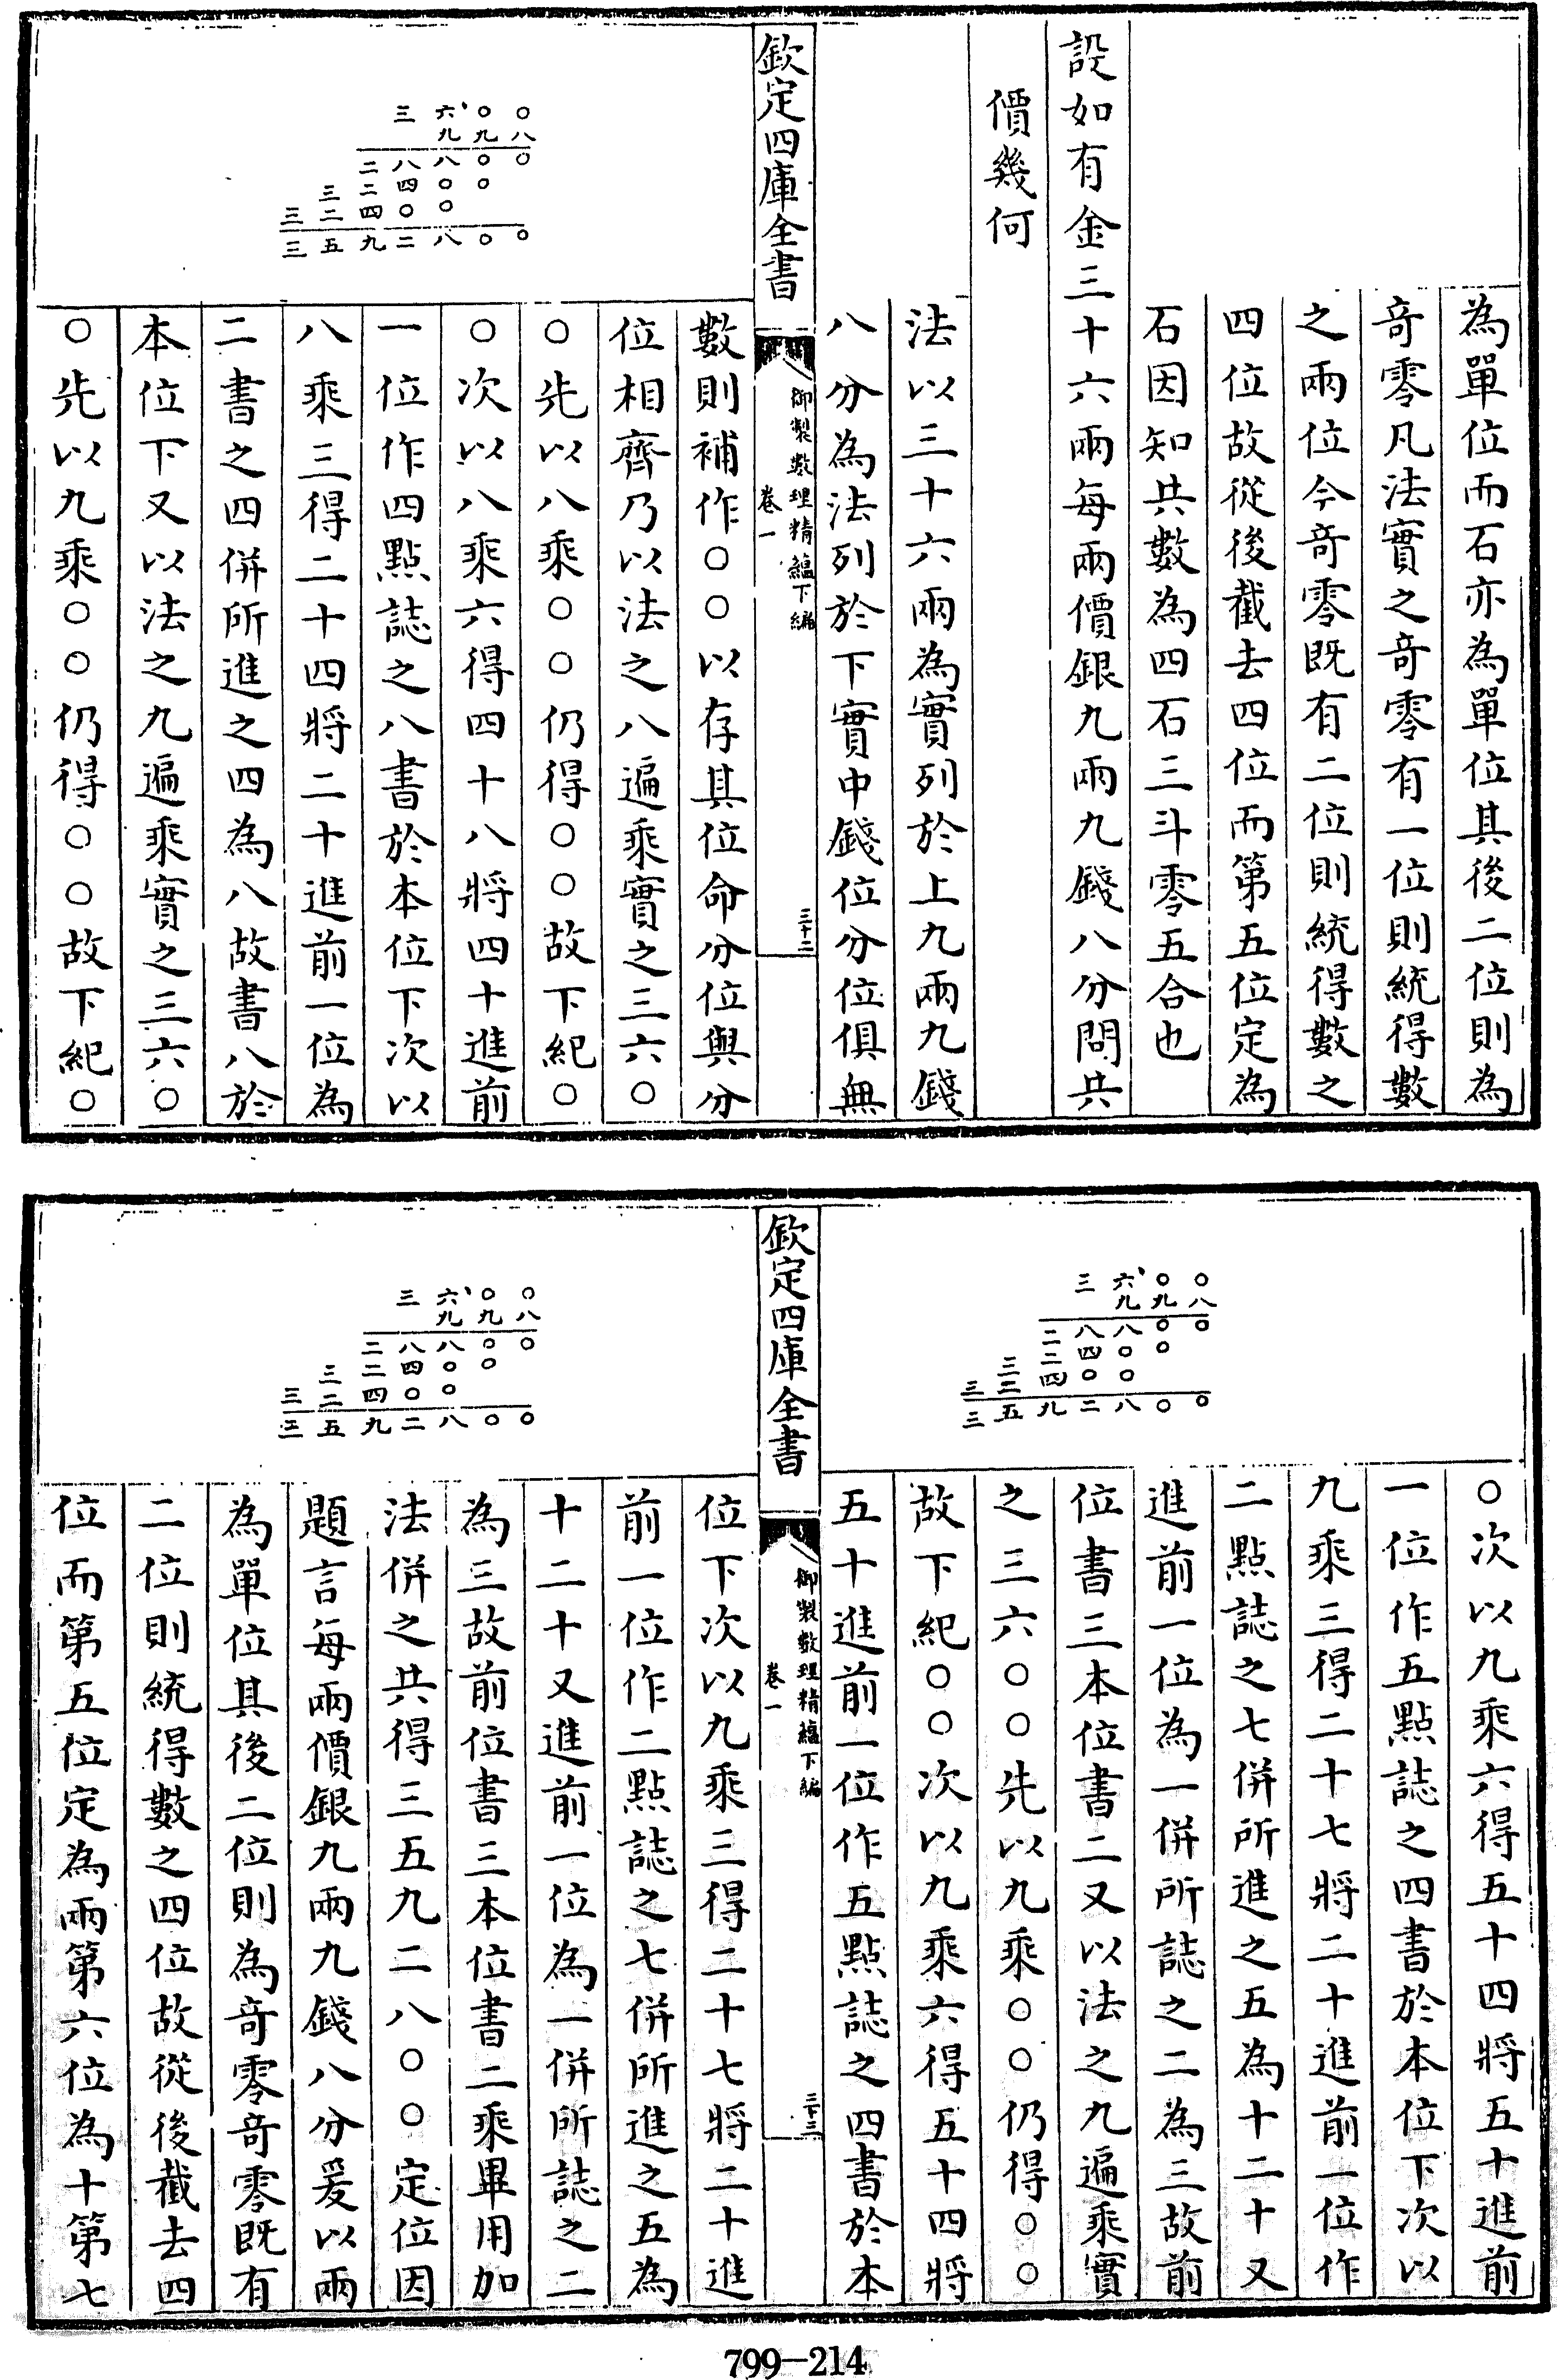 為單位而石亦為單位其後二位則為
奇零凡法實之奇零有一位則統得數
之兩位今奇零既有二位則統得數之
四位故從後截去四位而第五位定為
石因知共數為四石三斗零五合也
設如有金三十六兩每兩價銀九兩九錢八分問共
價幾何
法以三十六兩為實列於上九兩九錢
八分為法列於下實中錢位分位俱無
欽定四庫全書
御製數理精蘊下編
卷一
三十二
三六、〇〇
九九八
二八八〇〇
三二四〇〇
三二四〇〇
三五九二八〇〇
數則補作〇〇以存其位命分位與分
位相齊乃以法之八遍乘實之三六〇
〇先以八乘〇〇仍得〇〇故下紀〇
〇次以八乘六得四十八將四十進前
一位作四點誌之八書於本位下次以
八乘三得二十四將二十進前一位為
二書之四併所進之四為八故書八於
本位下又以法之九遍乘實之三六〇
〇先以九乘〇〇仍得〇〇故下紀〇
三六、〇〇
九九八
二八八〇〇
三二四〇〇
三二四〇〇
三五九二八〇〇
〇次以九乘六得五十四將五十進前
一位作五點誌之四書於本位下次以
九乘三得二十七將二十進前一位作
二點誌之七併所進之五為十二十又
進前一位為一併所誌之二為三故前
位書三本位書二又以法之九遍乘實
之三六〇〇先以九乘〇〇仍得〇〇
故下紀〇〇次以九乘六得五十四將
五十進前一位作五點誌之四書於本
欽定四庫全書
御製數理精蘊下編
卷一
三十三
三六、〇〇
九九八
二八八〇〇
三二四〇〇
三二四〇〇
三五九二八〇〇
位下次以九乘三得二十七將二十進
前一位作二點誌之七併所進之五為
十二十又進前一位為一併所誌之二
為三故前位書三本位書二乘畢用加
法併之共得三五九二八〇〇定位因
題言每兩價銀九兩九錢八分爰以兩
為單位其後二位則為奇零奇零既有
二位則統得數之四位故從後截去四
位而第五位定為兩第六位為十第七
799-214